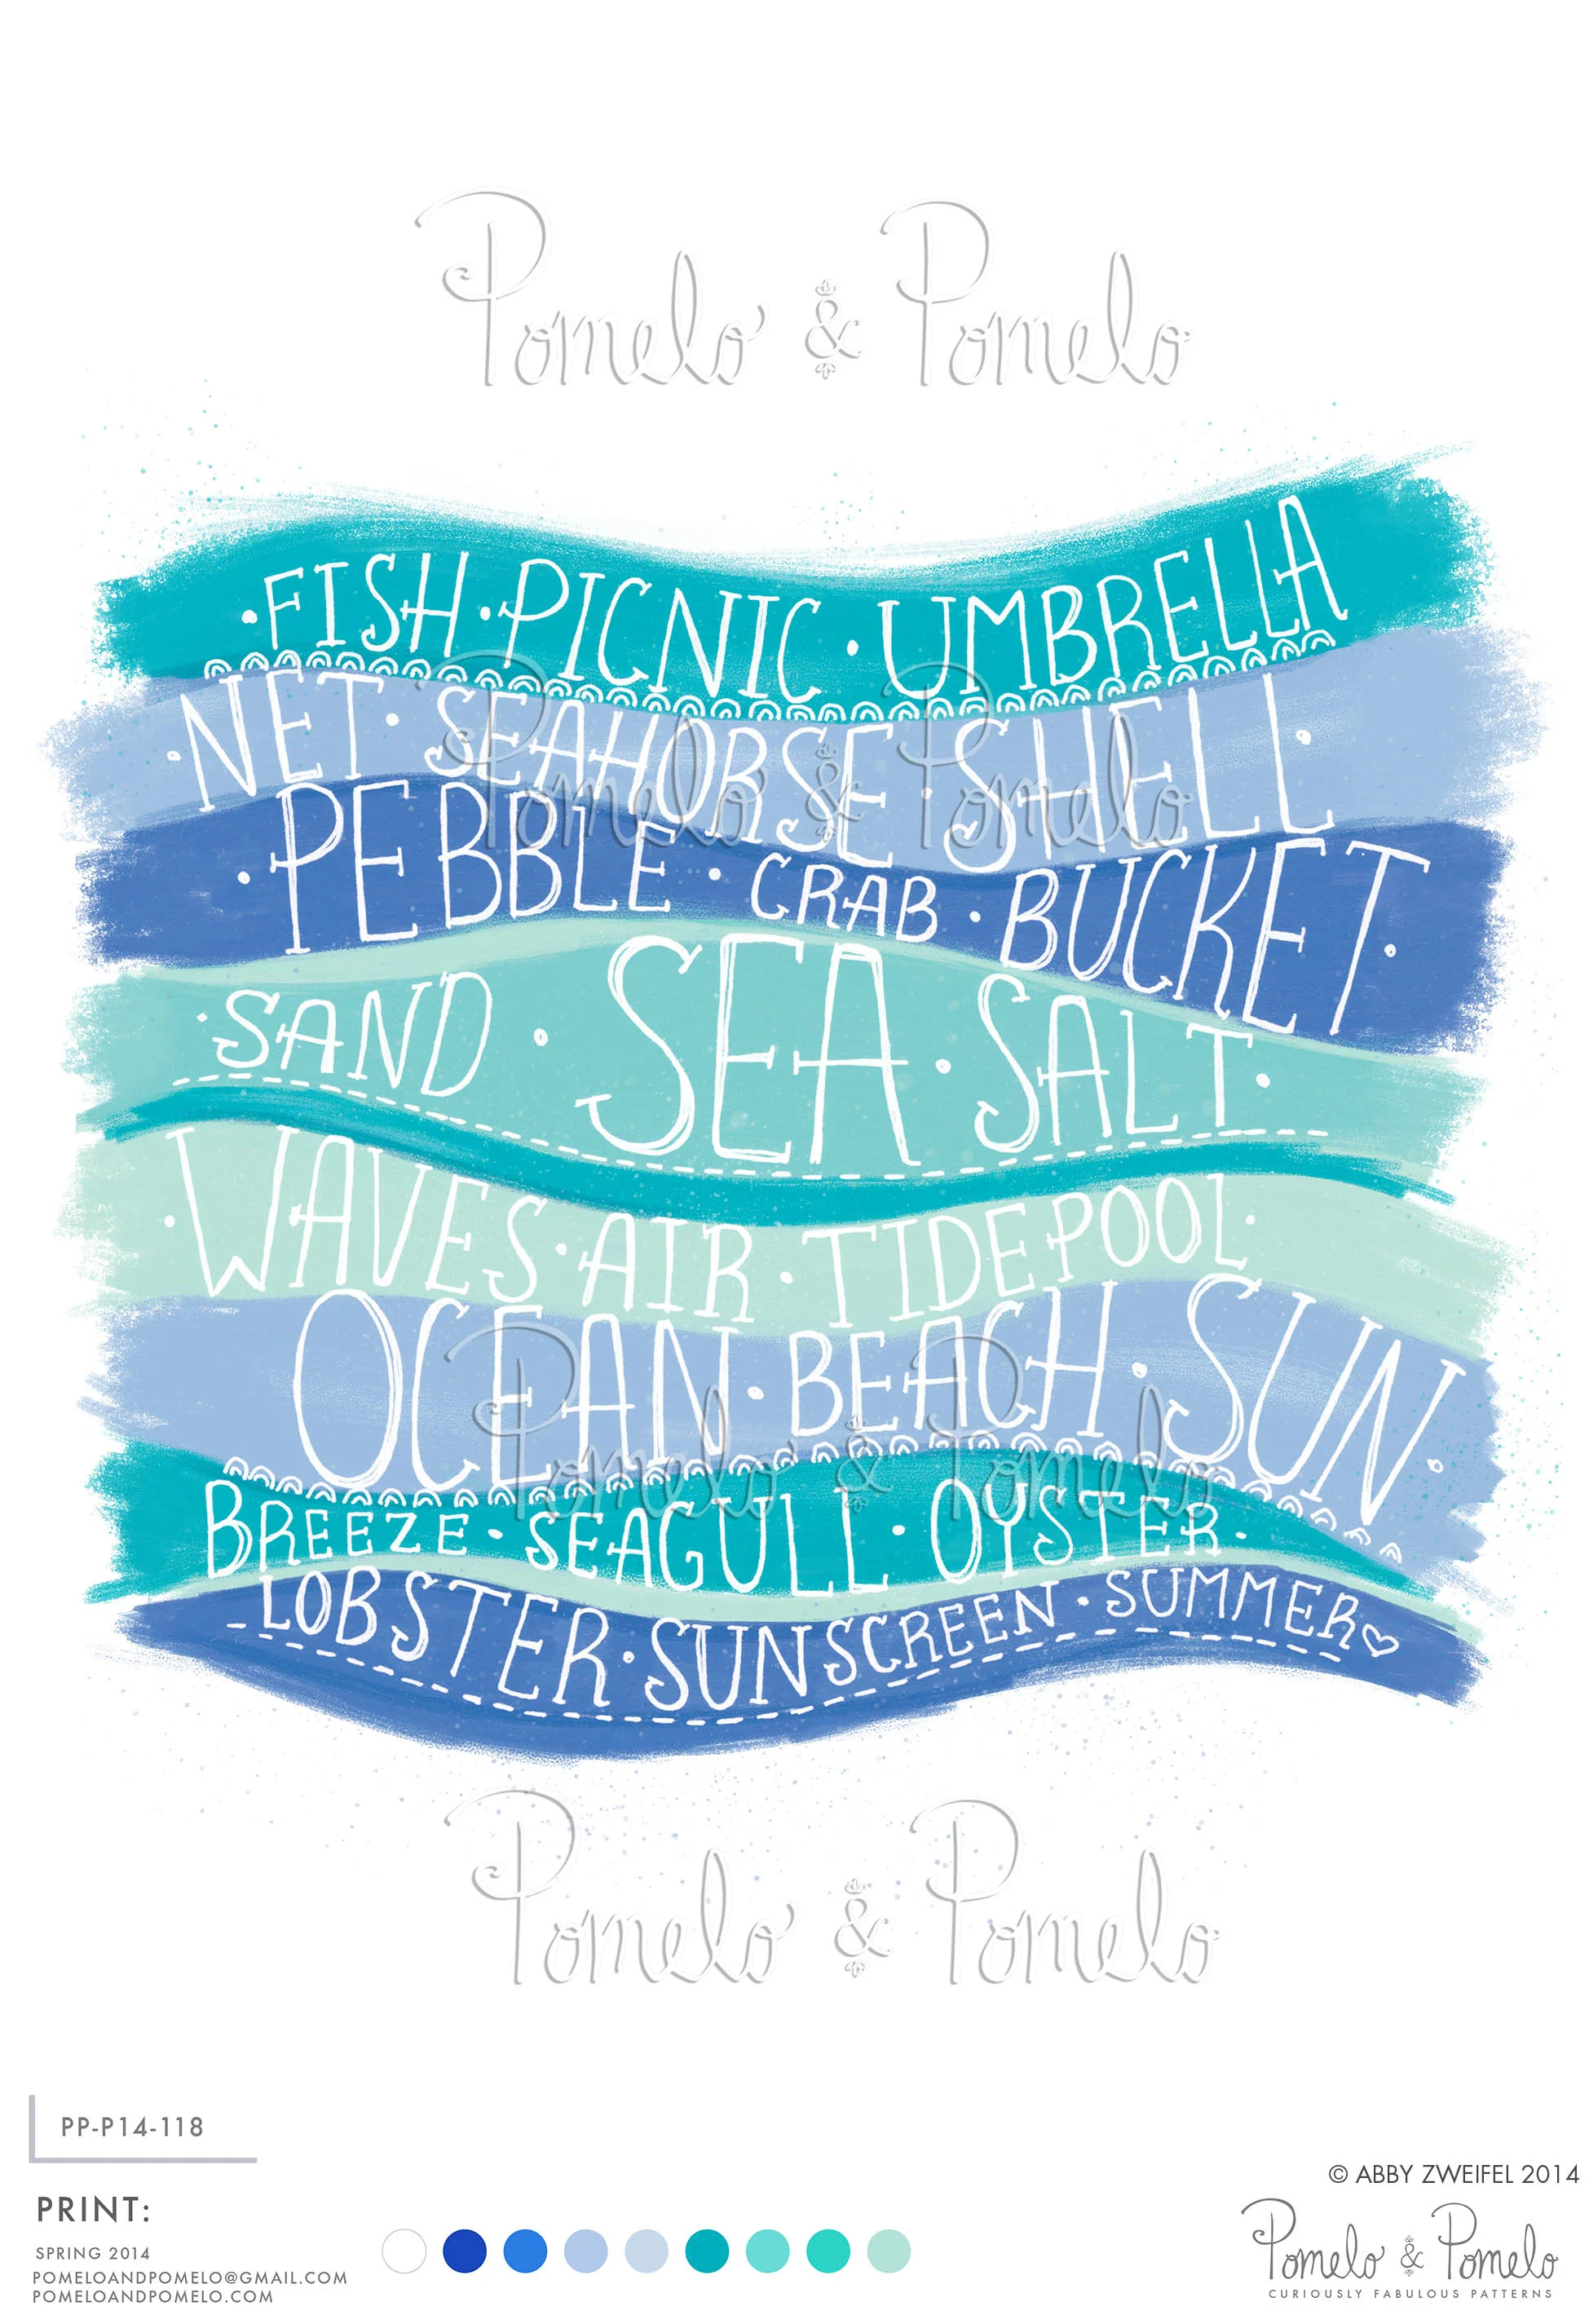 Pomelo & Pomelo
·FISH·PICNIC·UMBRELLA
·NET·SEAHORSE·SHELL·
Pomelo & Pomelo
·PEBBLE·CRAB·BUCKET·
·SAND·SEA·SALT·
·WAVES·AIR·TIDEPOOL·
OCEAN·BEACH·SUN·
Pomelo & Pomelo
BREEZE·SEAGULL·OYSTER·
LOBSTER·SUNSCREEN·SUMMER♡
Pomelo & Pomelo
PP-P14-118
© ABBY ZWEIFEL 2014
PRINT:
SPRING 2014
POMELOANDPOMELO@GMAIL.COM
POMELOANDPOMELO.COM
Pomelo & Pomelo
CURIOUSLY FABULOUS PATTERNS